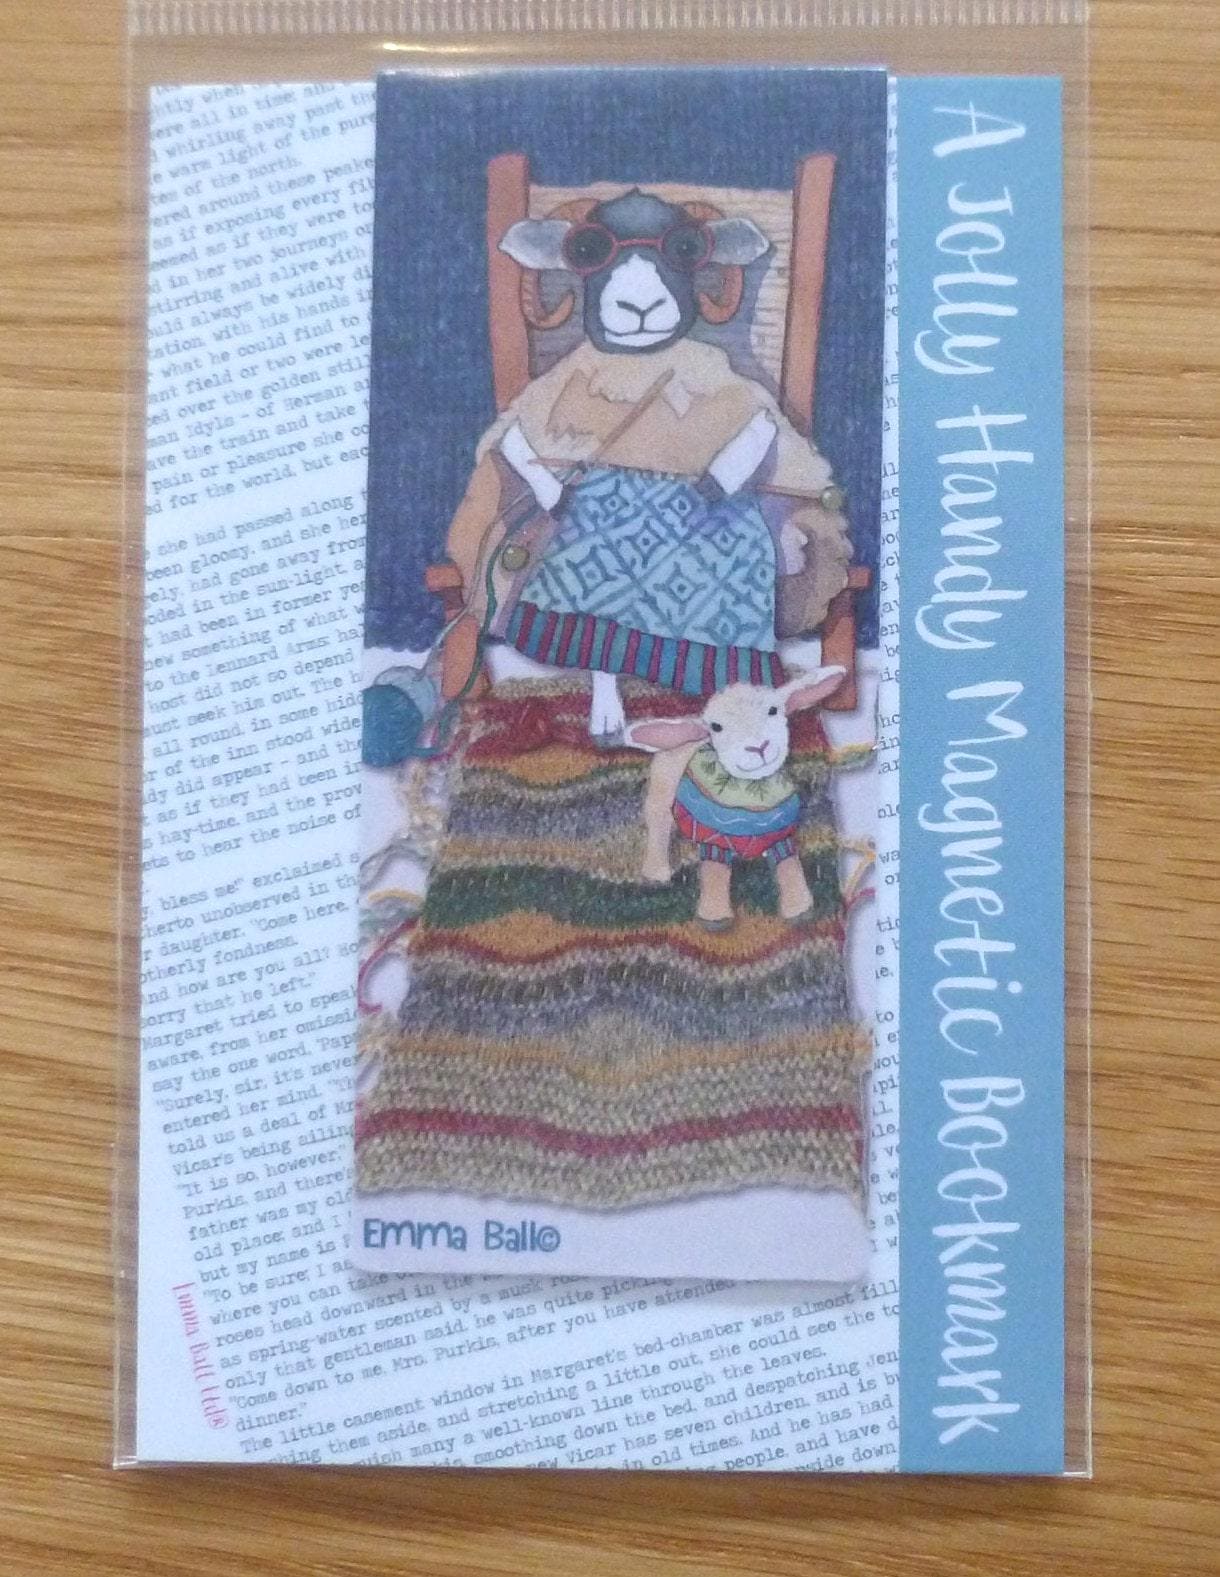 A Jolly Handy Magnetic Bookmark
htly when
ere all in time; and
whirling away past the
e warm light of the pure
tes of the north.
ered around these peaked
as if exposing every fit
eemed as if they were to
d in her two journeys on
stirring and alive with
ould always be widely di
tation with his hands in
what he could find to
ant field or two were le
ed over the golden still
man Idyls - of Herman an
ave the train and take
pain or pleasure she co
ed for the world, but eac
she had passed along
been gloomy, and she her
ely, had gone away from
oded in the sun-light, a
t had been in former year
new something of what w
to the Lennard Arms; ha
host did not so depend
ust seek him out. The h
all round, in some hidd
r of the inn stood wide
dy did appear - and the
as if they had been in
hay-time, and the prov
ets to hear the noise of
y, bless me!" exclaimed s
herto unobserved in th
r daughter. "Come here,
otherly fondness.
And how are you all? Ho
sorry that he left."
Margaret tried to speak
aware, from her omissi
say the one word, "Papa
"Surely, sir, it's never
entered her mind. "Th
told us a deal of Mr
Vicar's being ailing
"It is so, however,"
Purkis, and there's
father was my old
old place; and I
but my name is
"To be sure; I as
where you can take
roses head downward in the
as spring-water scented by a musk rose
only that gentleman said, he was quite picking
"Come down to me, Mrs. Purkis, after you have attended
dinner."
The little casement window in Margaret's bed-chamber was almost fill
hing them aside, and stretching a little out, she could see the to
uish many a well-known line through the leaves.
smoothing down the bed, and despatching Jen
new Vicar has seven children, and is bu
in old times. And he has had
people, and have d
side down
Emma Ball©
Emma Ball Ltd®